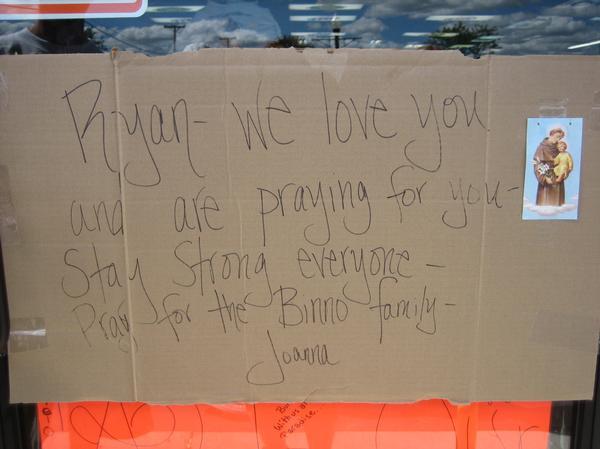 Ryan- We love you
and are praying for you-
Stay Strong everyone-
Pray for the Binno family-
Joanna
With us in
Paradise.